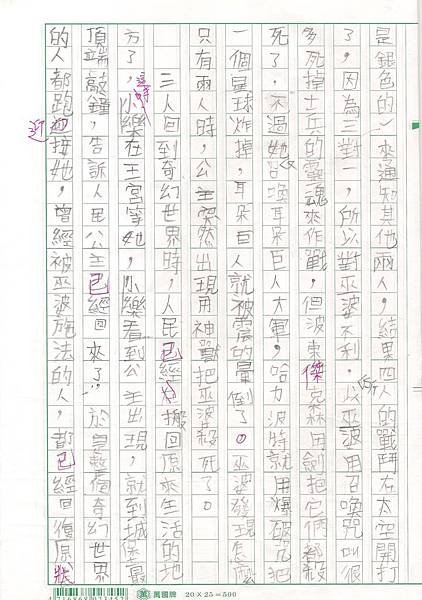 是銀色的，來通知其他兩人，結果四人的戰鬥在太空開打
了，因為三對一，所以對巫婆不利。所以巫婆用召喚咒叫很
多死掉士兵的靈魂來作戰，但波東傑克森用劍把它們都殺
死了，不過她又召喚耳朵巨人大軍，哈力波特就用爆破咒把
一個星球炸掉，耳朵巨人就被震的暈倒了。巫婆發現怎麼
只有兩人時，公主突然出現用神獸把巫婆殺死了。
三人回到奇幻世界時，人民已經搬回原來生活的地
方了，這時小樂在王宮等她，小樂看到公主出現，就到城堡最
頂端敲鐘，告訴人民公主已經回來了，於是整個奇幻世界
的人都跑迎接她，曾經被巫婆施法的人，都已經回復原狀
迎
萬國牌 20×25=500
4716868023457